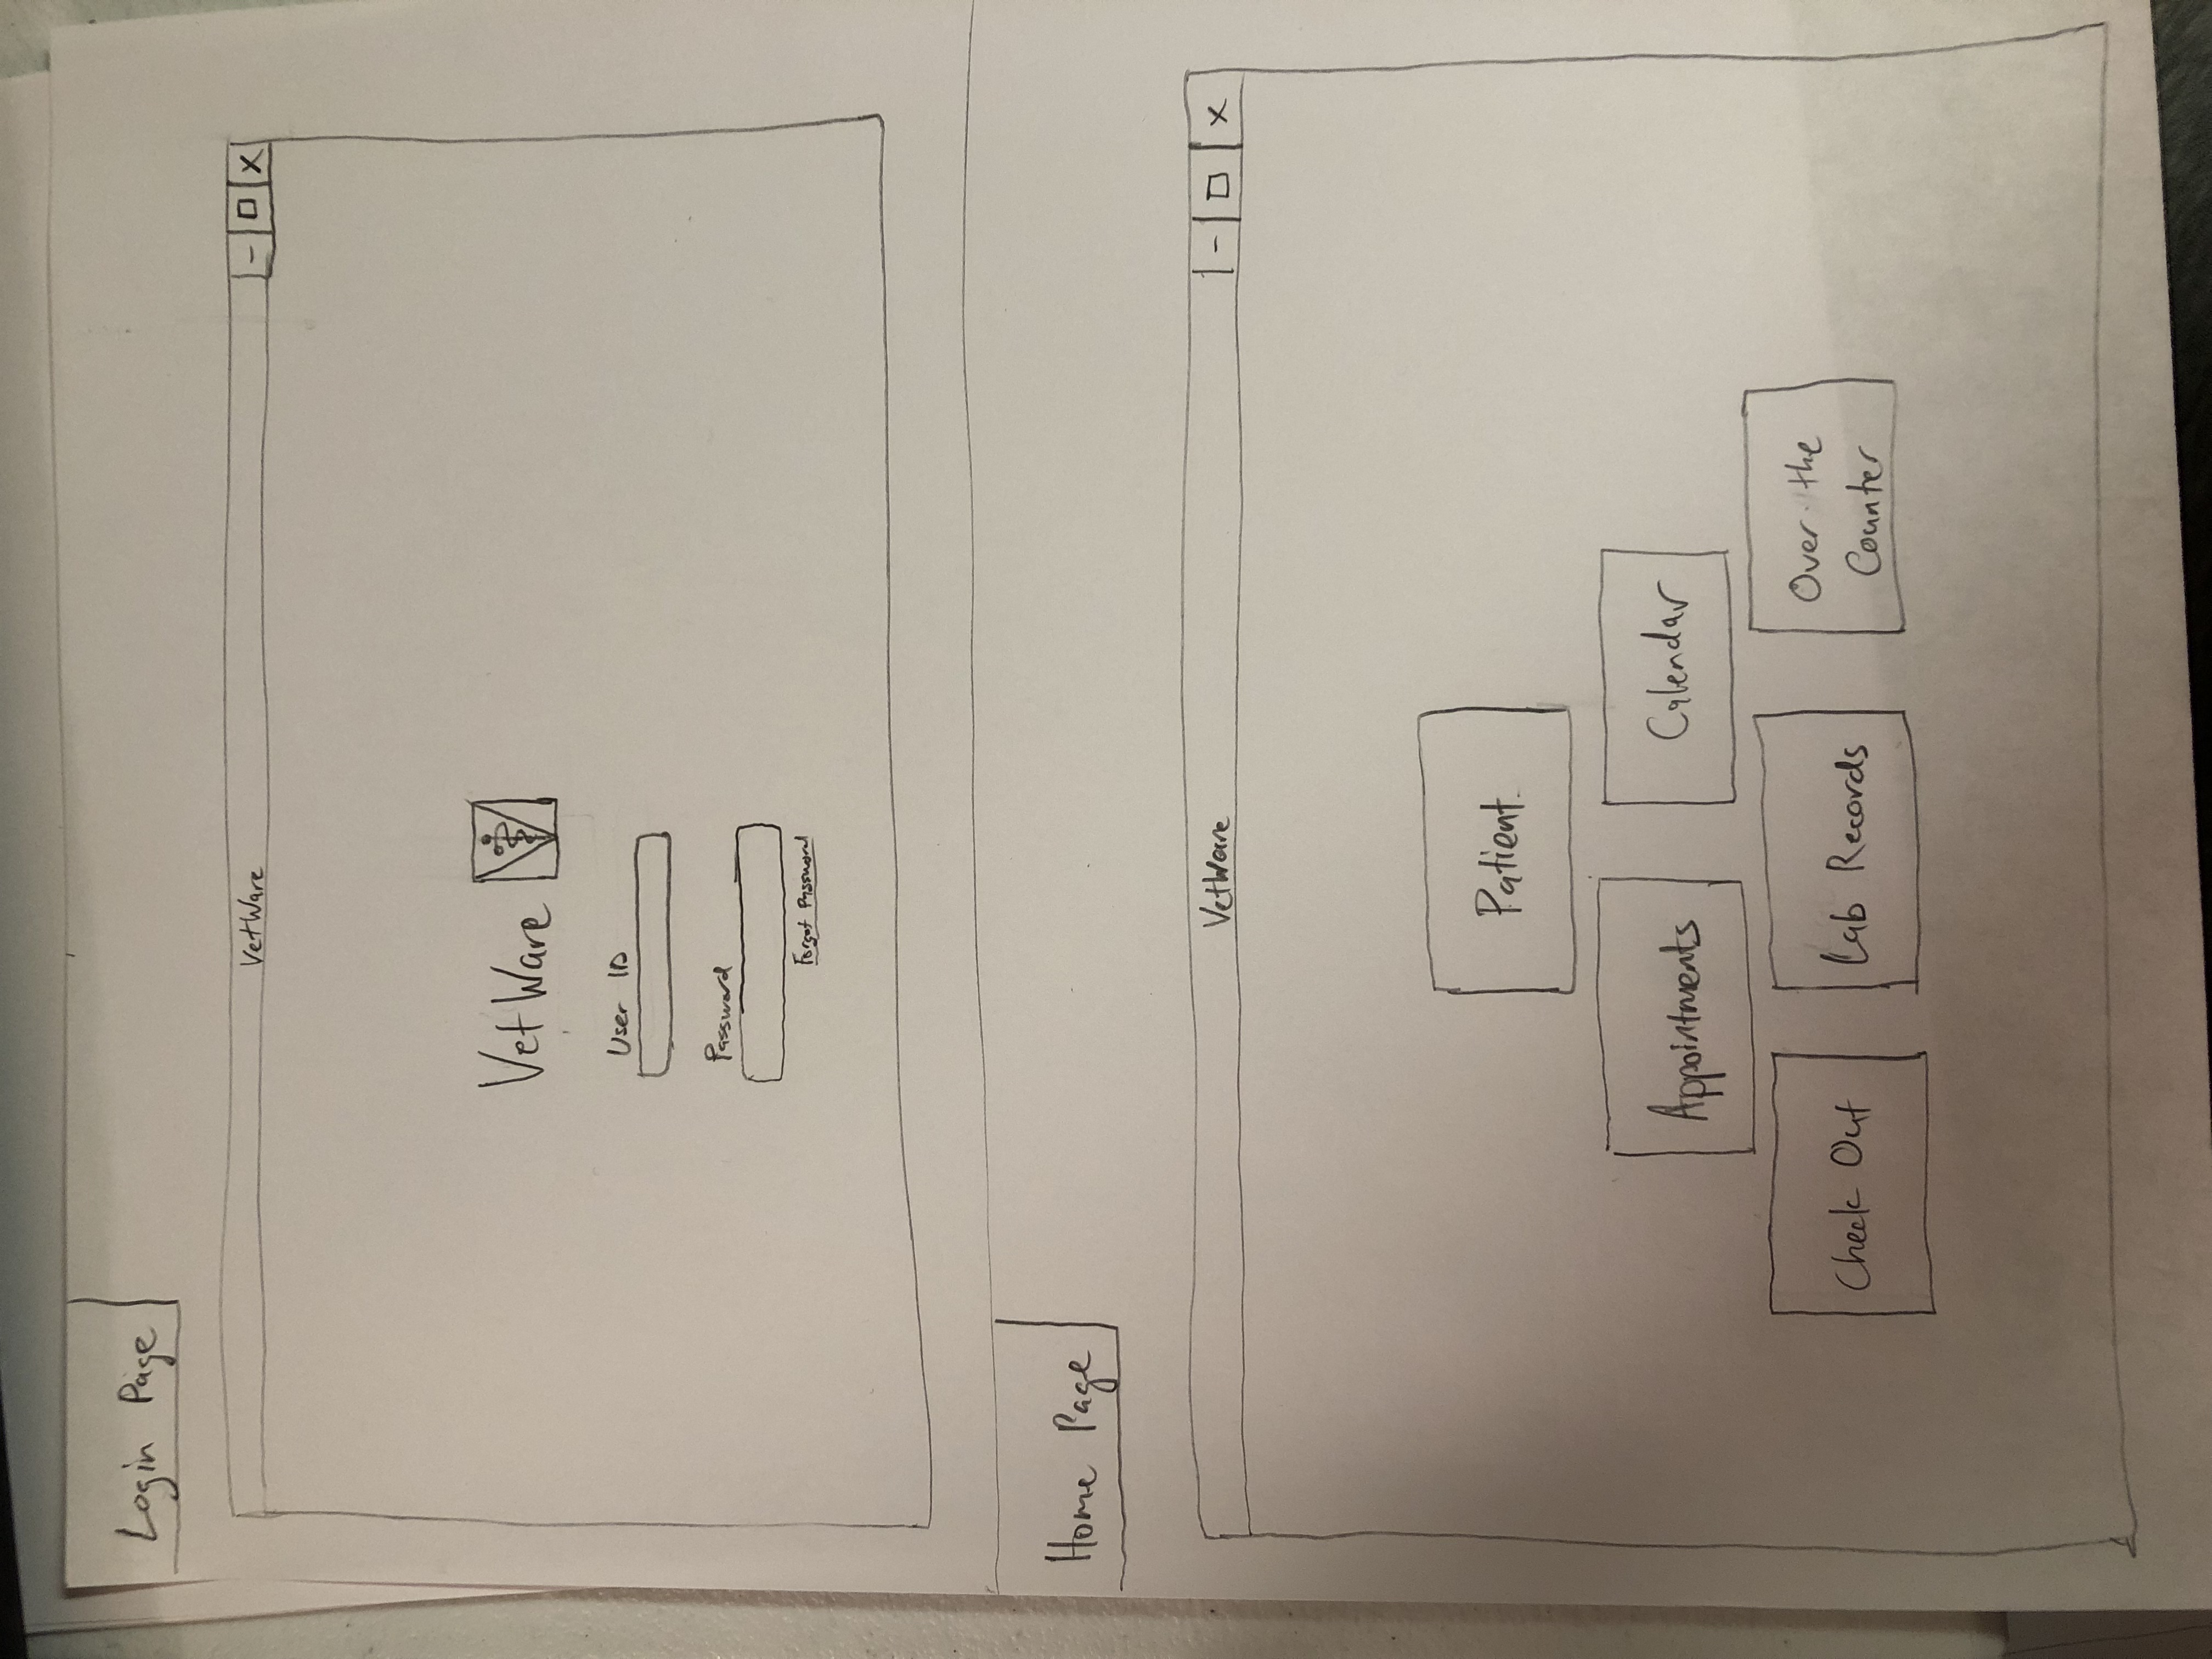 Login Page
VetWare
- □ X
VetWare
User ID
Password
Forgot Password
Home Page
VetWare
- □ X
Patient
Appointments
Calendar
Check Out
Lab Records
Over the
Counter